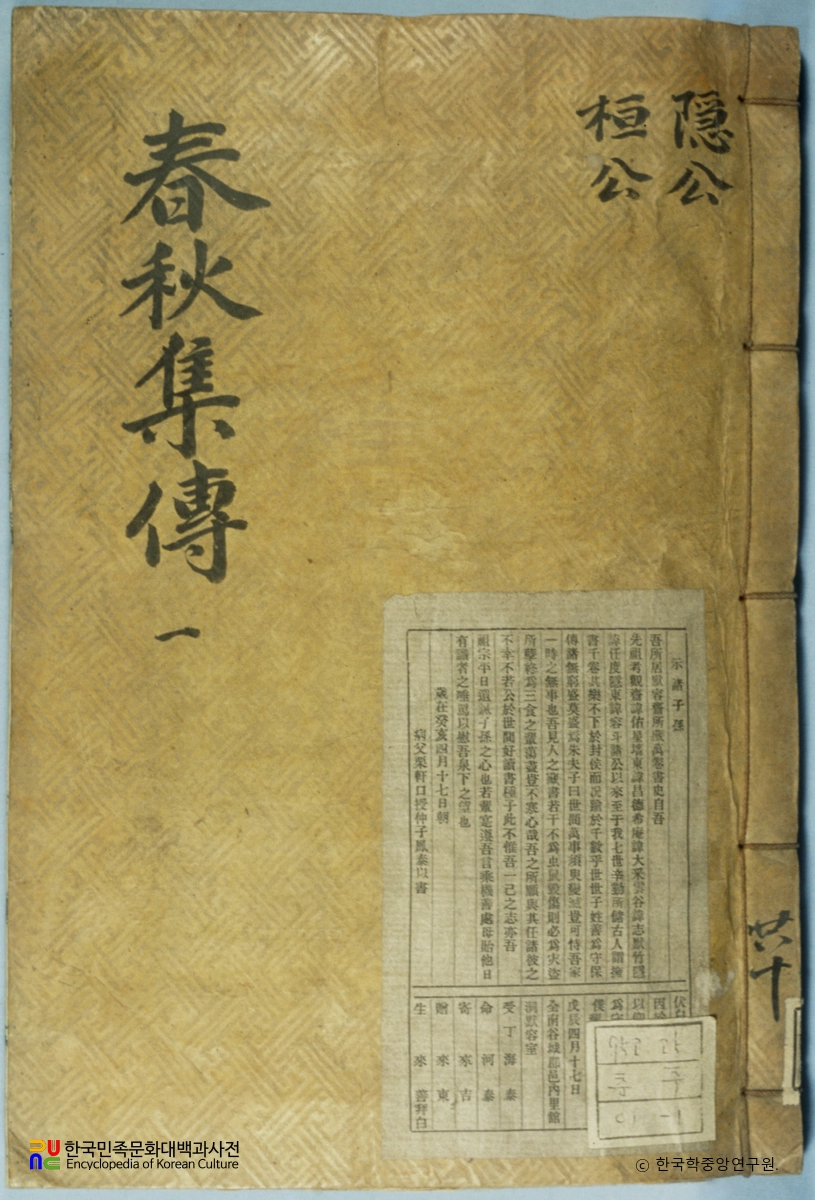 隱公
桓公
春秋集傳 一
共十
示諸子孫
吾所居默容齋所藏萬卷書史自吾
先祖考觀齋諱佑星塔東諱昌德希庵諱大采雲谷諱志默竹隱
諱任度 東諱容斗諸公以來至于我七世辛勤所儲古人謂擁
書千卷其樂不下於封侯而況踰於千數乎世世子姓善爲守保
傳諸無窮盛莫盛焉朱夫子曰世間萬事須臾變滅豈可恃吾家
一時之無事也吾見人之藏書若干不爲虫鼠毀傷則必爲火盜
所孽終爲三食之蠹蕩盡豈不寒心哉吾之所願與其任諸彼之
不幸不若公於世間好讀書種子此不惟吾一己之志亦吾
祖宗平日遺誡子孫之心也若輩寔遵吾言乘機善處毋貽他日
有識者之唾罵以慰吾泉下之望也
歲在癸亥四月十七日朝
病父栗軒口授仲子鳳泰以書
戊辰四月十七日
全南谷城郡邑內里舘
洞默容室
受 丁海泰
命 河泰
寄 來吉
贈 來東
生 來善拜白
한국민족문화대백과사전
Encyclopedia of Korean Culture
© 한국학중앙연구원.